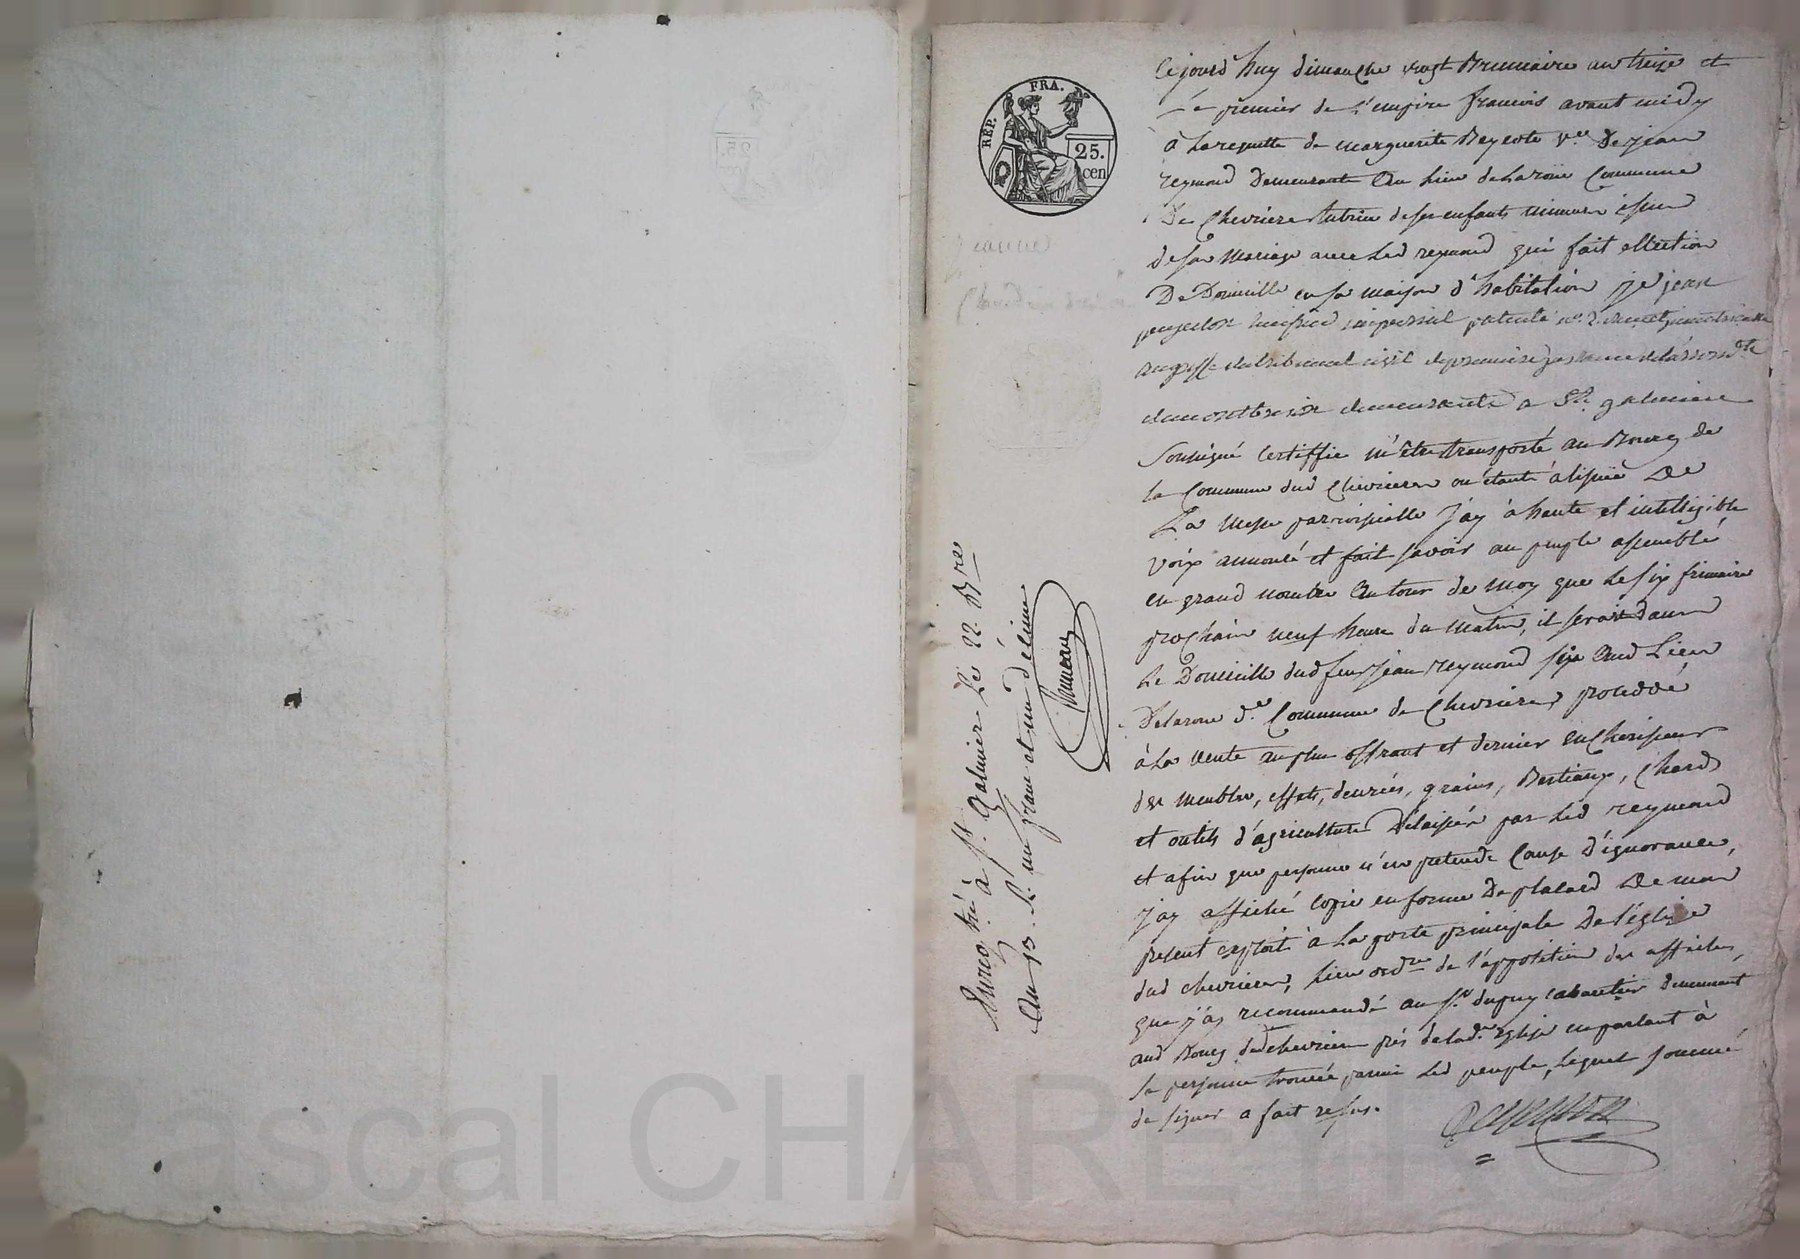 REP. FRA.
25.
cen
Ce jourd'huy dimanche vingt Brumaire an treize et
premier de l'empire francois avant midy
a La requette de marguerite Beyert v.ve De jean
reymond Demeurante Au Lieu de La roüe Commune
De Chevriere tutrice de ses enfants mineurs issus
de son Mariage avec Led reymond qui fait ellection
De Domicille en sa maison d'habitation, je jean
huissier imperial patenté n.o 2
au greffe du tribunal civil de premiere jnstance de l'arrond.te
de montbrison demeurante a St. galmier
Soussigné Certiffie m'être transporté au Bourg de
la Commune dud Chevrieres ou étant à lissüe De
La Messe parroissialle J'ay à haute et intelligible
voix annoncé et fait savoir au peuple assemblé
en grand nombre Autour de moy que Le six frimaire
prochain neuf heure du matin, il sera dans
Le Domicille dud feu jean reymond sis Aud Lieu
De laroue d.e Commune de Chevrieres, procédé
à La vente au plus offrant et dernier enchérisseur
des meubles, effets, denrées, grains, Bestiaux, Chards
et outils d'agriculture Délaissés par Led reymond
et afin que personne n'en pretende Cause D'ignorance,
J'ay affiché copie en forme De placard De mon
present exploit à La porte principale De l'église
dud chevrieres, Lieu ord.re de l'apposition des affiches,
que j'ai recommandé au s.r dupuy cabaretier demeurant
aud Bourg de chevrieres près de lad.e Eglise en parlant à
Sa personne trouvée parmi Led peuple, Lequel sommé
de signer a fait refus.
Enreg.tré à St. Galmier Le 22. B.re
An 13. R. un franc et un décime
ascal CHAREYRON